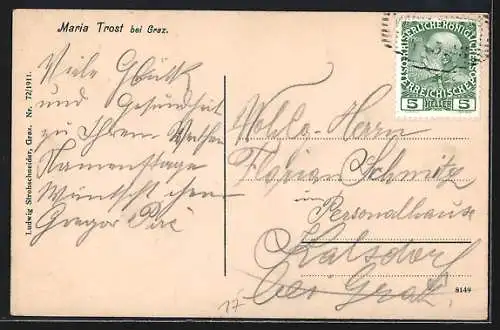 Maria Trost bei Graz.
Viele Glück
und Gesundheit
zu Ihrem Werthen
Namenstage
Wünscht Ihnen
Gregor
Ludwig Strohschneider, Graz. Nr. 72/1911.
KAISERLICHE KÖNIGLICHE ÖSTERREICHISCHE POST
5 HELLER 5
Wohlg. Herrn
Florian Schmitz
im
Personalhause
Kalsdorf
bei Graz
8149
17